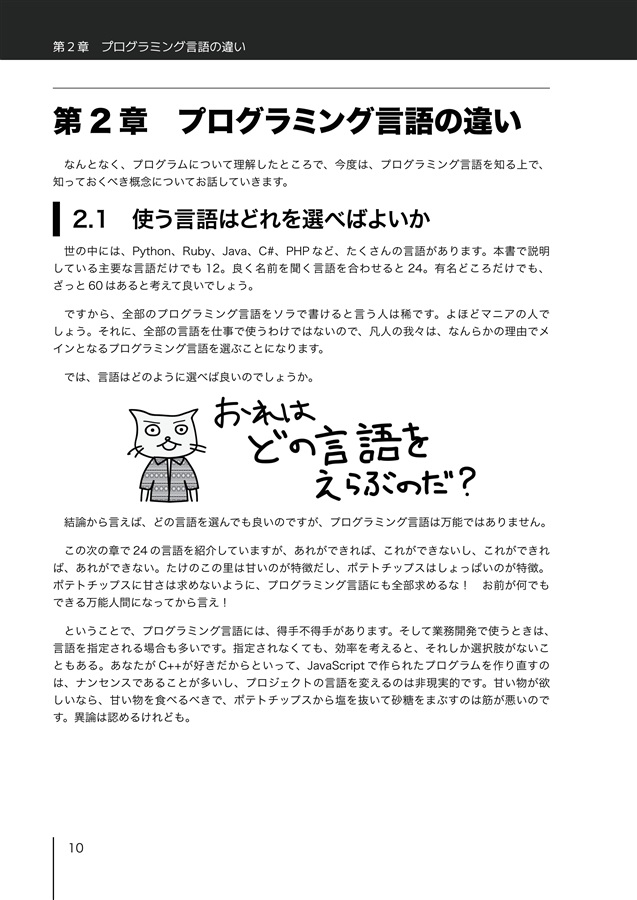 第2章　プログラミング言語の違い
第2章　プログラミング言語の違い
なんとなく、プログラムについて理解したところで、今度は、プログラミング言語を知る上で、
知っておくべき概念についてお話していきます。
2.1　使う言語はどれを選べばよいか
世の中には、Python、Ruby、Java、C#、PHPなど、たくさんの言語があります。本書で説明
している主要な言語だけでも12。良く名前を聞く言語を合わせると24。有名どころだけでも、
ざっと60はあると考えて良いでしょう。
ですから、全部のプログラミング言語をソラで書けると言う人は稀です。よほどマニアの人で
しょう。それに、全部の言語を仕事で使うわけではないので、凡人の我々は、なんらかの理由でメ
インとなるプログラミング言語を選ぶことになります。
では、言語はどのように選べば良いのでしょうか。
おれは
どの言語を
えらぶのだ？
結論から言えば、どの言語を選んでも良いのですが、プログラミング言語は万能ではありません。
この次の章で24の言語を紹介していますが、あれができれば、これができないし、これができれ
ば、あれができない。たけのこの里は甘いのが特徴だし、ポテトチップスはしょっぱいのが特徴。
ポテトチップスに甘さは求めないように、プログラミング言語にも全部求めるな！　お前が何でも
できる万能人間になってから言え！
ということで、プログラミング言語には、得手不得手があります。そして業務開発で使うときは、
言語を指定される場合も多いです。指定されなくても、効率を考えると、それしか選択肢がないこ
ともある。あなたがC++が好きだからといって、JavaScriptで作られたプログラムを作り直すの
は、ナンセンスであることが多いし、プロジェクトの言語を変えるのは非現実的です。甘い物が欲
しいなら、甘い物を食べるべきで、ポテトチップスから塩を抜いて砂糖をまぶすのは筋が悪いので
す。異論は認めるけれども。
10